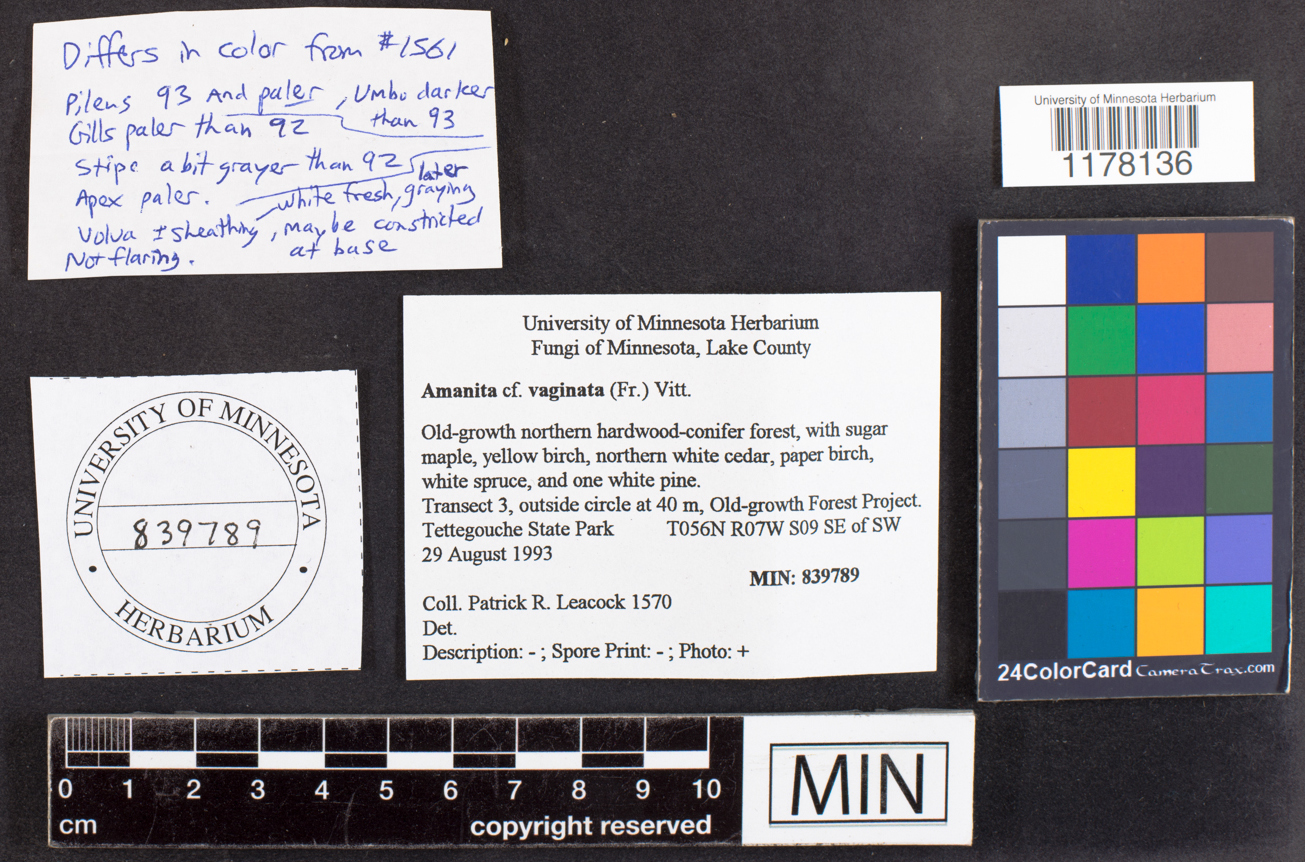 Differs in color from #1561
Pileus 93 And paler, Umbo darker than 93
Gills paler than 92
Stipe a bit grayer than 92
Apex paler. white fresh, graying later
Volva ± sheathing, maybe constricted at base
Not flaring.
University of Minnesota Herbarium
1178136
University of Minnesota Herbarium
Fungi of Minnesota, Lake County
Amanita cf. vaginata (Fr.) Vitt.
Old-growth northern hardwood-conifer forest, with sugar
maple, yellow birch, northern white cedar, paper birch,
white spruce, and one white pine.
Transect 3, outside circle at 40 m, Old-growth Forest Project.
Tettegouche State Park T056N R07W S09 SE of SW
29 August 1993
MIN: 839789
Coll. Patrick R. Leacock 1570
Det.
Description: - ; Spore Print: - ; Photo: +
UNIVERSITY OF MINNESOTA
839789
• HERBARIUM •
24ColorCard CameraTrax.com
0 1 2 3 4 5 6 7 8 9 10
cm copyright reserved
MIN